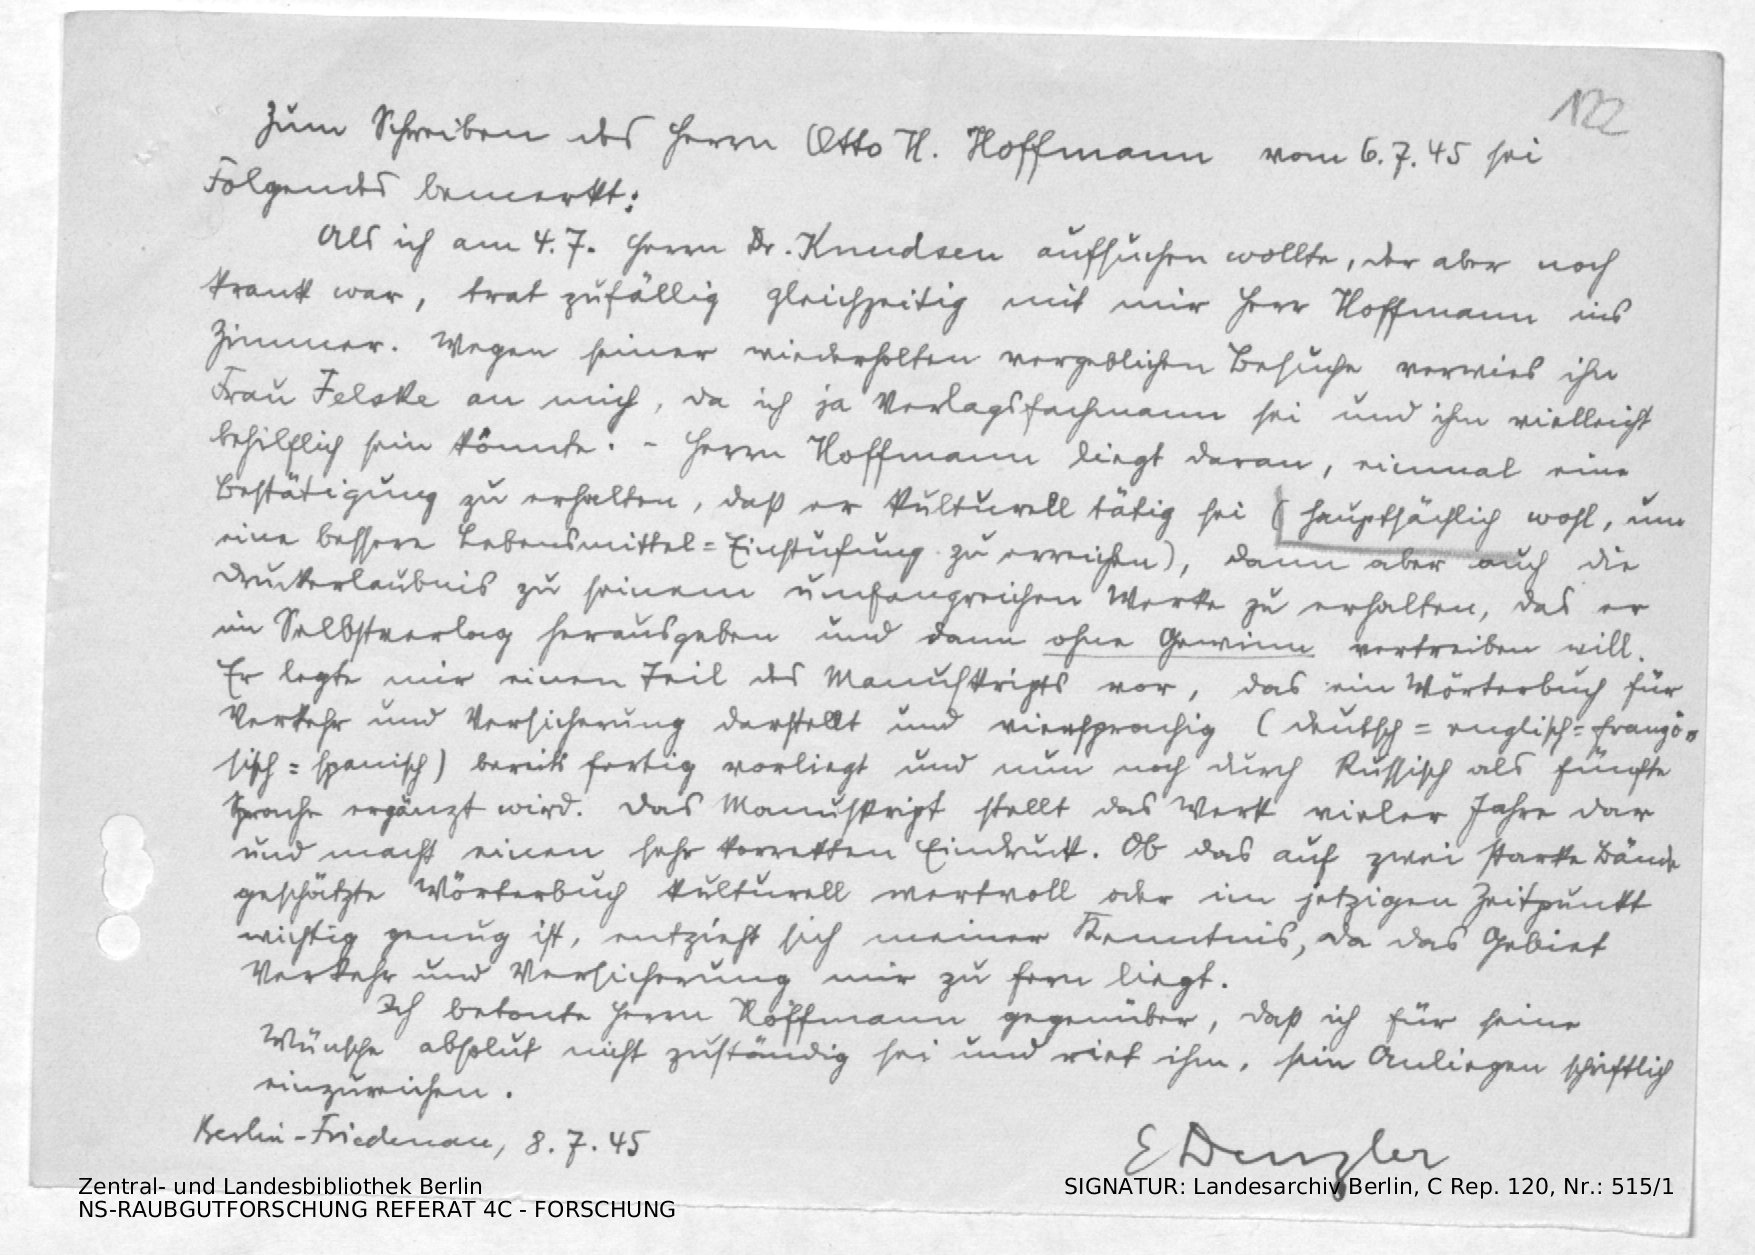 122
Zum Schreiben des Herrn Otto H. Hoffmann vom 6.7.45 sei
Folgendes bemerkt:
Als ich am 4.7. Herrn Dr. Knudsen aufsuchen wollte, der aber noch
krank war, trat zufällig gleichzeitig mit mir Herr Hoffmann ins
Zimmer. Wegen seiner wiederholten vergeblichen Besuche verwies ihn
Frau Felske an mich, da ich ja Verlagsfachmann sei und ihm vielleicht
behilflich sein könnte. - Herrn Hoffmann liegt daran, einmal eine
Bestätigung zu erhalten, daß er kulturell tätig sei (hauptsächlich wohl, um
eine bessere Lebensmittel=Einstufung zu erreichen), dann aber auch die
Druckerlaubnis zu seinem umfangreichen Werke zu erhalten, das er
im Selbstverlag herausgeben und dann ohne Gewinn vertreiben will.
Er legte mir einen Teil des Manuskripts vor, das ein Wörterbuch für
Verkehr und Versicherung darstellt und viersprachig (deutsch=englisch=franzö=
sisch=spanisch) bereits fertig vorliegt und nun noch durch Russisch als fünfte
Sprache ergänzt wird. Das Manuskript stellt das Werk vieler Jahre dar
und macht einen sehr korrekten Eindruck. Ob das auf zwei starke Bände
geschätzte Wörterbuch kulturell wertvoll oder im jetzigen Zeitpunkt
wichtig genug ist, entzieht sich meiner Kenntnis, da das Gebiet
Verkehr und Versicherung mir zu fern liegt.
Ich betonte Herrn Hoffmann gegenüber, daß ich für seine
Wünsche absolut nicht zuständig sei und riet ihm, sein Anliegen schriftlich
einzureichen.
Berlin-Friedenau, 8.7.45
E Denzler
Zentral- und Landesbibliothek Berlin
NS-RAUBGUTFORSCHUNG REFERAT 4C - FORSCHUNG
SIGNATUR: Landesarchiv Berlin, C Rep. 120, Nr.: 515/1